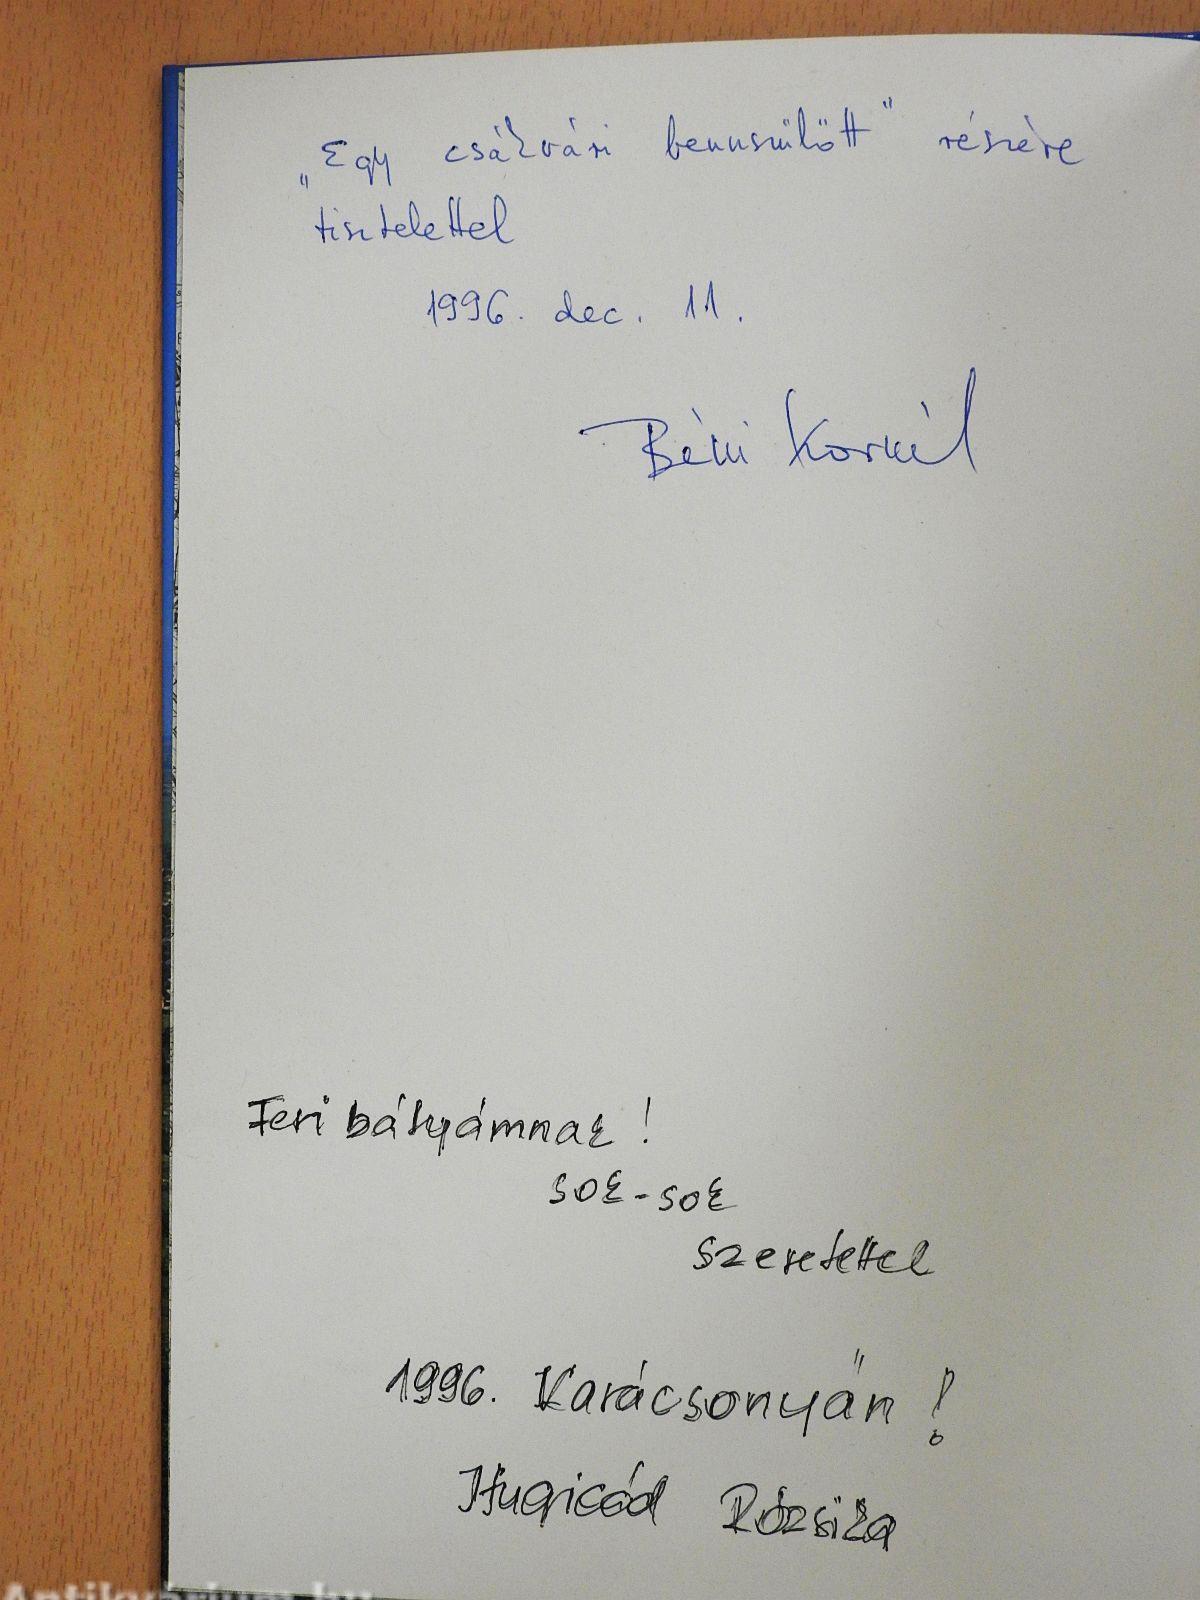 „Egy csákvári bennszülött" részére
tisztelettel
1996. dec. 11.
Béni Kornél
Feri bátyámnak!
sok-sok
szeretettel
1996. Karácsonyán!
Hugicád Rózsika
Antikvárium.hu